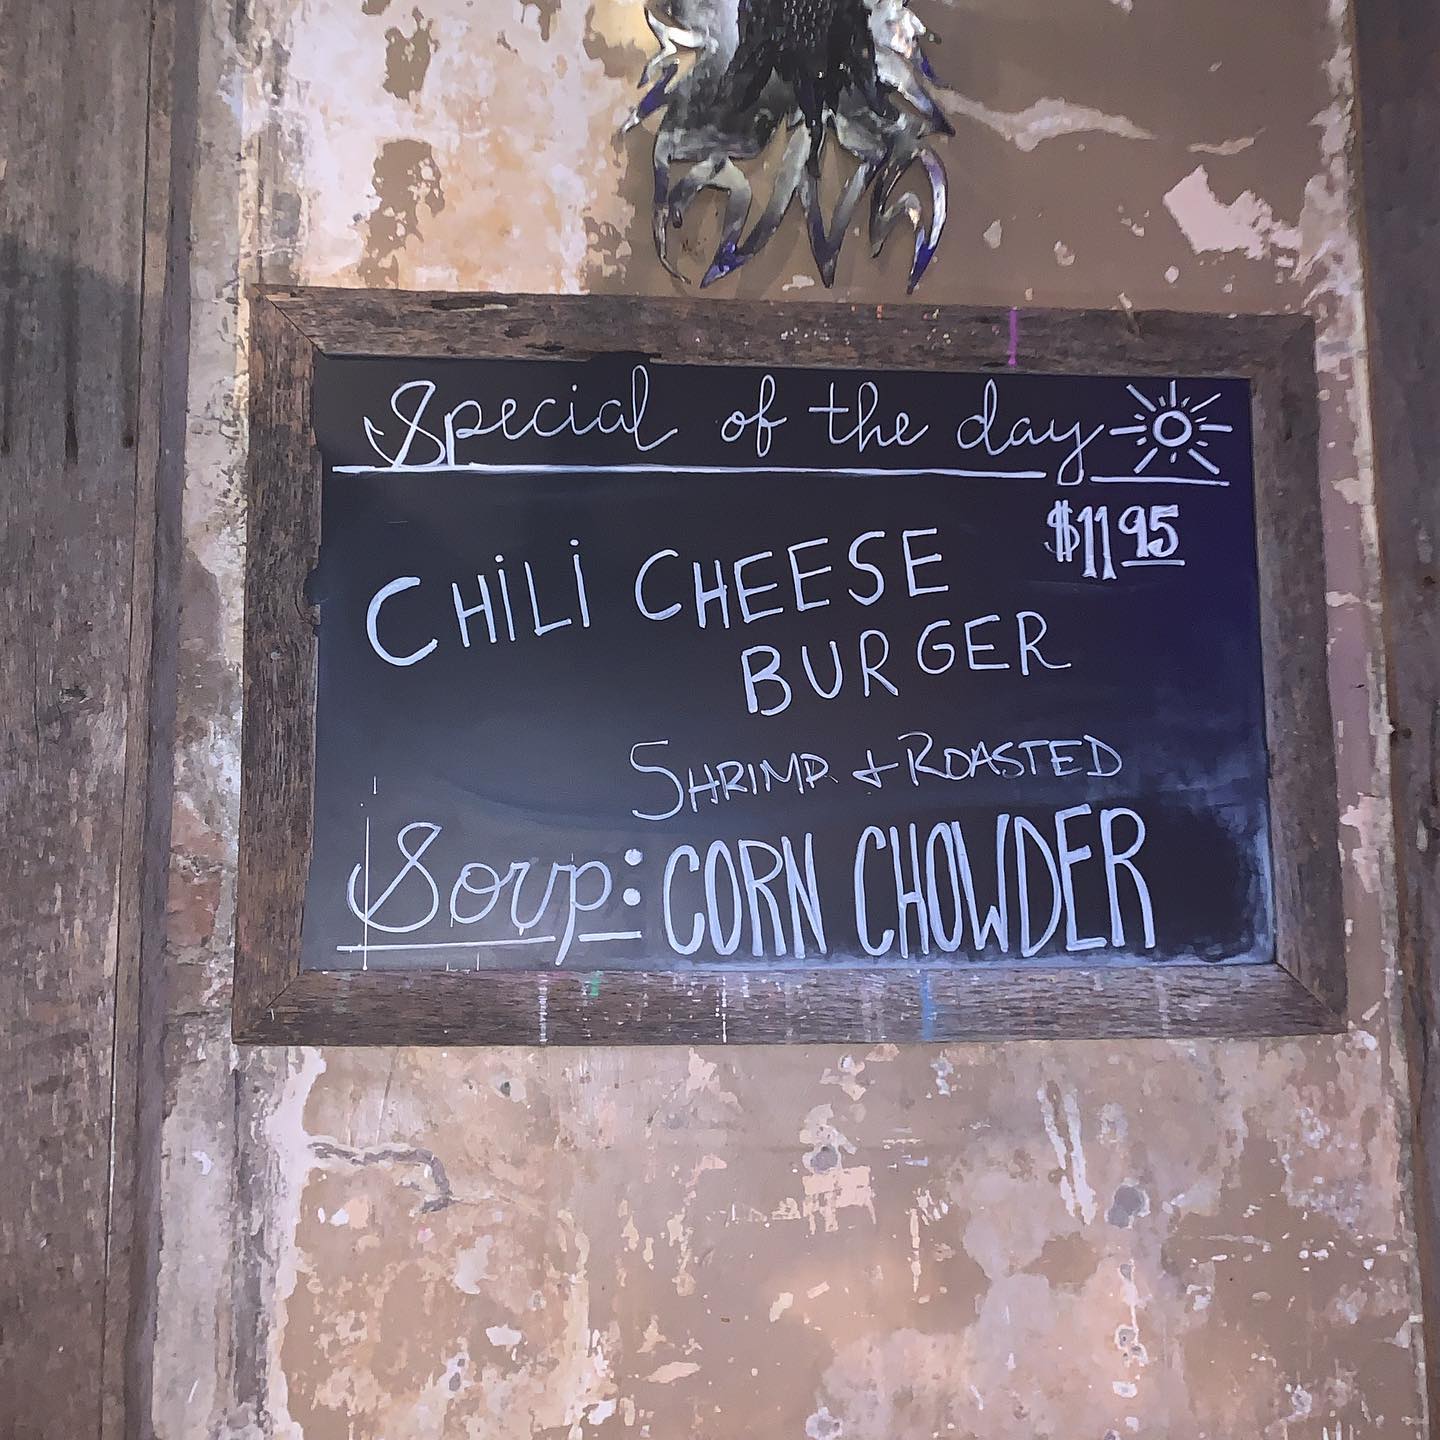 Special of the day
$11.95
CHILI CHEESE
BURGER
SHRIMP + ROASTED
Soup: CORN CHOWDER